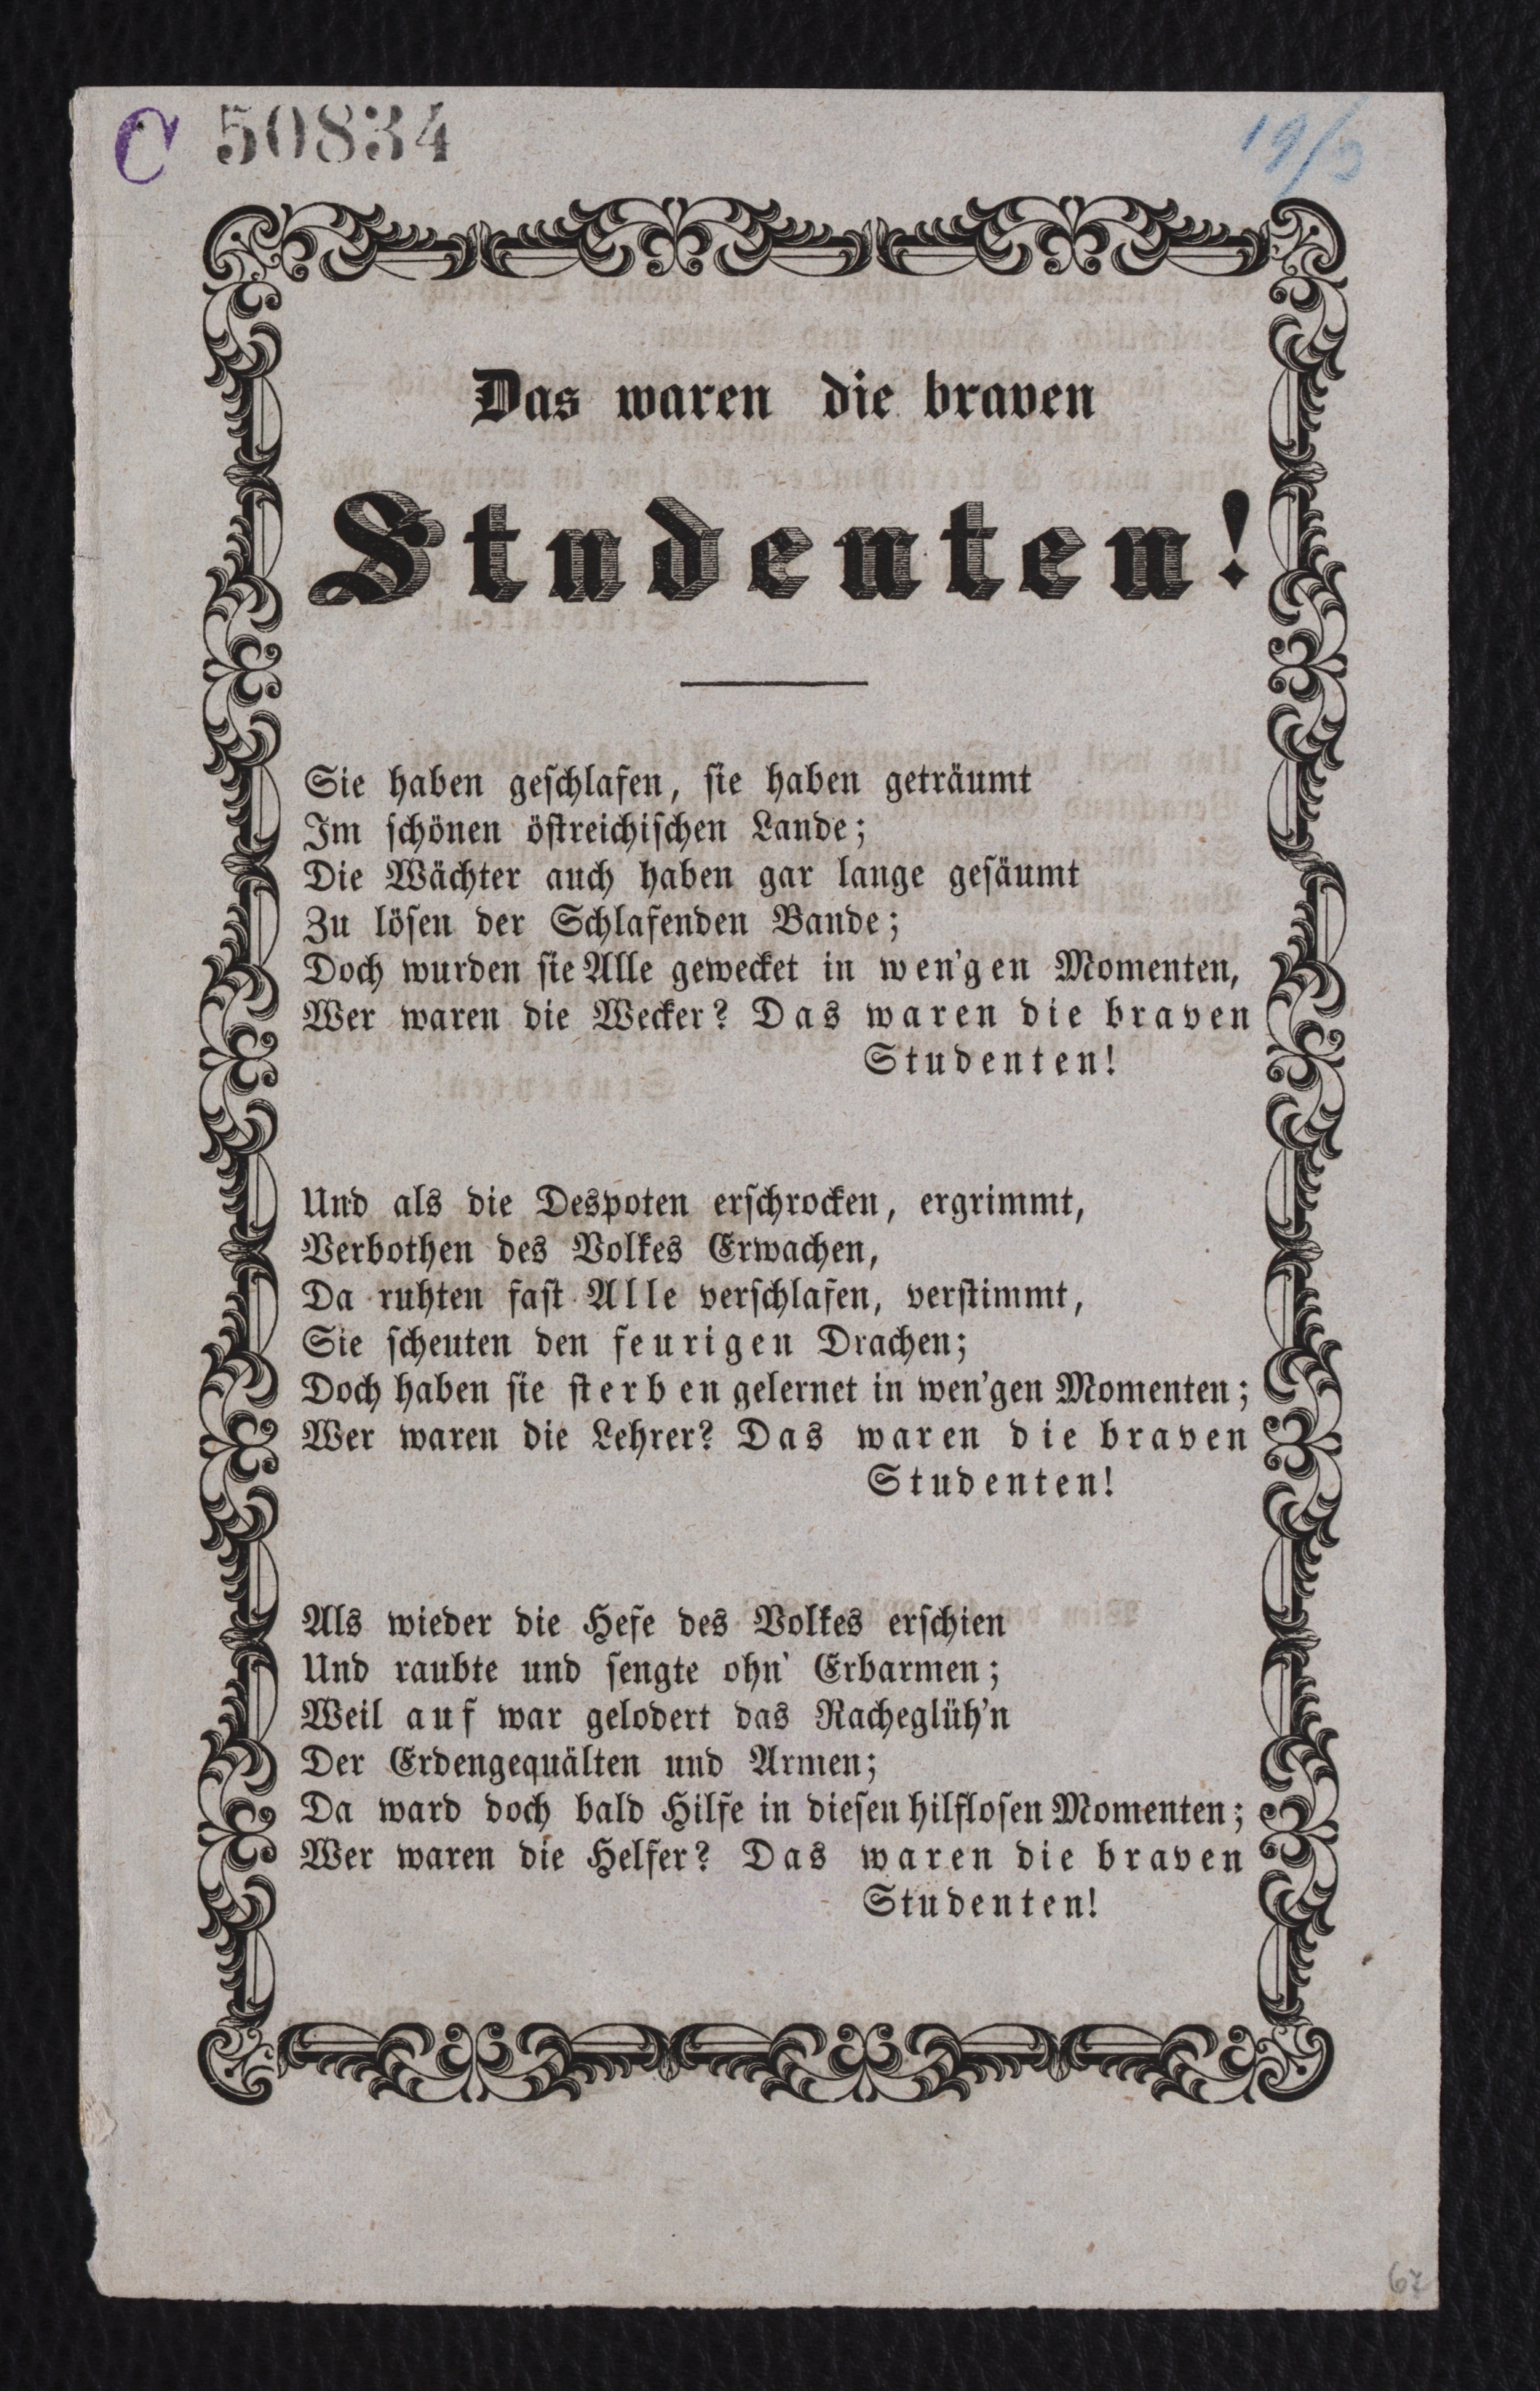 C 50834
19/3
Das waren die braven
Studenten!
Sie haben geschlafen, sie haben geträumt
Im schönen östreichischen Lande;
Die Wächter auch haben gar lange gesäumt
Zu lösen der Schlafenden Bande;
Doch wurden sie Alle gewecket in wen'gen Momenten,
Wer waren die Wecker? Das waren die braven
Studenten!
Und als die Despoten erschrocken, ergrimmt,
Verbothen des Volkes Erwachen,
Da ruhten fast Alle verschlafen, verstimmt,
Sie scheuten den feurigen Drachen;
Doch haben sie sterben gelernet in wen'gen Momenten;
Wer waren die Lehrer? Das waren die braven
Studenten!
Als wieder die Hefe des Volkes erschien
Und raubte und sengte ohn' Erbarmen;
Weil auf war gelodert das Racheglüh'n
Der Erdengequälten und Armen;
Da ward doch bald Hilfe in diesen hilflosen Momenten;
Wer waren die Helfer? Das waren die braven
Studenten!